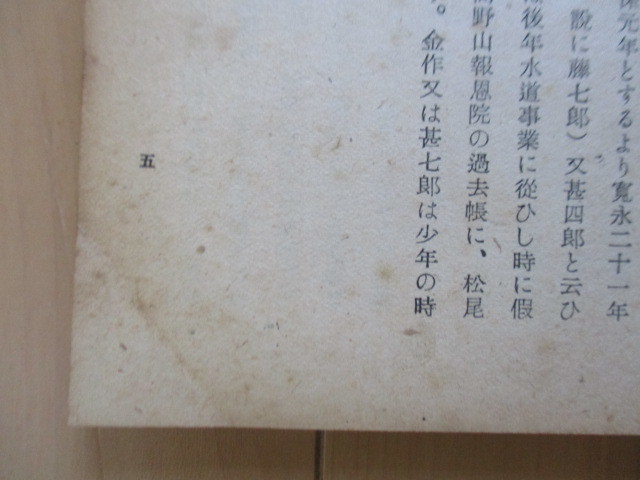 保元年とするより寬永二十一年
說に藤七郎）又甚四郎と云ひ
後年水道事業に從ひし時に假
高野山報恩院の過去帳に、松尾
。金作又は甚七郎は少年の時
五